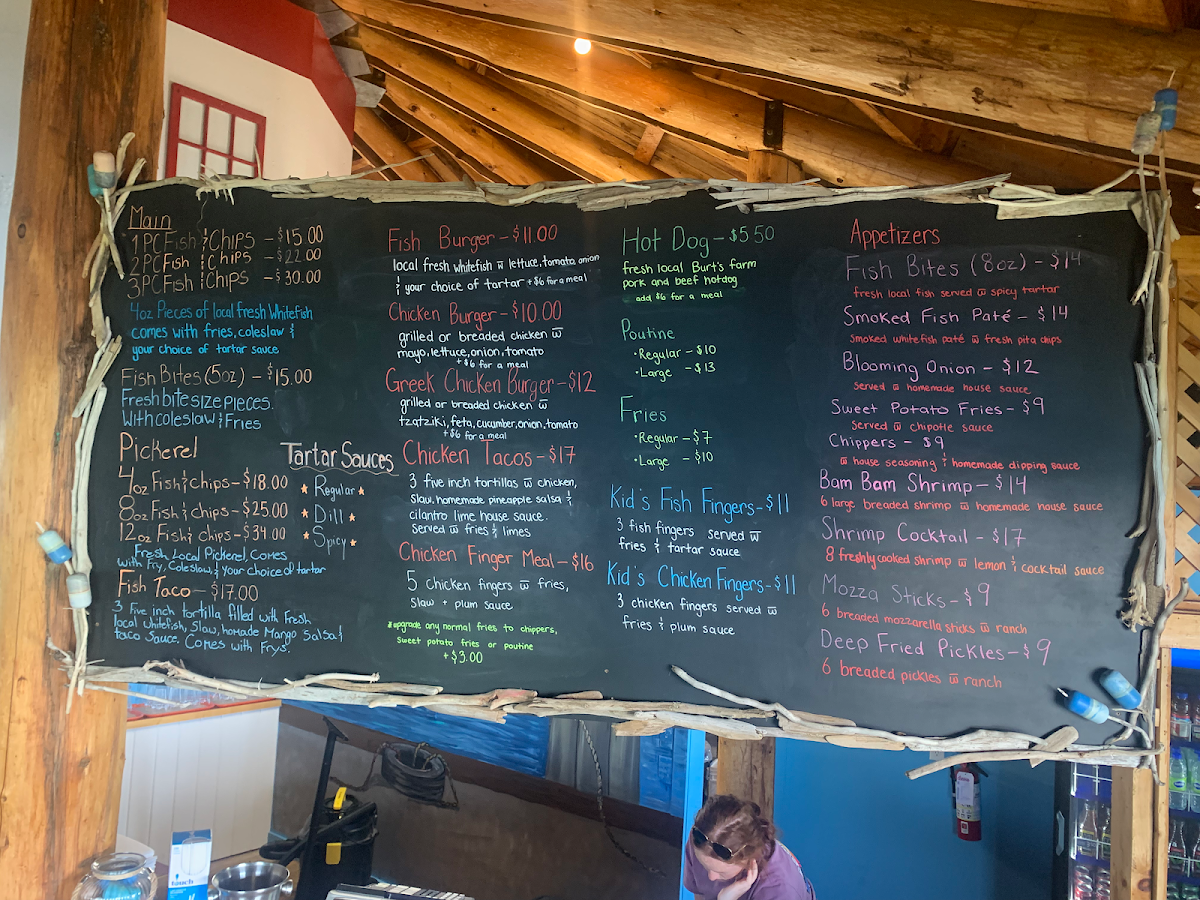 Main
1 PC Fish & Chips - $15.00
2 PC Fish & Chips - $22.00
3 PC Fish & Chips - $30.00
4oz Pieces of local fresh Whitefish
comes with fries, coleslaw &
your choice of tartar sauce
Fish Bites (5oz) - $15.00
Fresh bite size pieces.
With coleslaw & Fries
Pickerel
4oz Fish & chips - $18.00
8oz Fish & chips - $25.00
12oz Fish & chips - $34.00
Fresh Local Pickerel, Comes
with Fry, Coleslaw, & your choice of tartar
Fish Taco - $17.00
3 five inch tortilla filled with Fresh
local whitefish, Slaw, homade Mango salsa &
taco Sauce. Comes with Frys.
Tartar Sauces
★ Regular ★
★ Dill ★
★ Spicy ★
Fish Burger - $11.00
local fresh whitefish w lettuce, tomato, onion
& your choice of tartar + $6 for a meal
Chicken Burger - $10.00
grilled or breaded chicken w
mayo, lettuce, onion, tomato
+ $6 for a meal
Greek Chicken Burger - $12
grilled or breaded chicken w
tzatziki, feta, cucumber, onion, tomato
+ $6 for a meal
Chicken Tacos - $17
3 five inch tortillas w chicken,
slaw, homemade pineapple salsa &
cilantro lime house sauce.
Served w fries & limes
Chicken Finger Meal - $16
5 chicken fingers w fries,
slaw + plum sauce
* upgrade any normal fries to chippers,
sweet potato fries or poutine
+ $3.00
Hot Dog - $5.50
fresh local Burt's farm
pork and beef hotdog
add $6 for a meal
Poutine
• Regular - $10
• Large - $13
Fries
• Regular - $7
• Large - $10
Kid's Fish Fingers - $11
3 fish fingers served w
fries & tartar sauce
Kid's Chicken Fingers - $11
3 chicken fingers served w
fries & plum sauce
Appetizers
Fish Bites (8oz) - $14
fresh local fish served w spicy tartar
Smoked Fish Paté - $14
smoked whitefish paté w fresh pita chips
Blooming Onion - $12
served w homemade house sauce
Sweet Potato Fries - $9
served w chipotle sauce
Chippers - $9
w house seasoning & homemade dipping sauce
Bam Bam Shrimp - $14
6 large breaded shrimp w homemade house sauce
Shrimp Cocktail - $17
8 freshly cooked shrimp w lemon & cocktail sauce
Mozza Sticks - $9
6 breaded mozzarella sticks w ranch
Deep Fried Pickles - $9
6 breaded pickles w ranch
touch